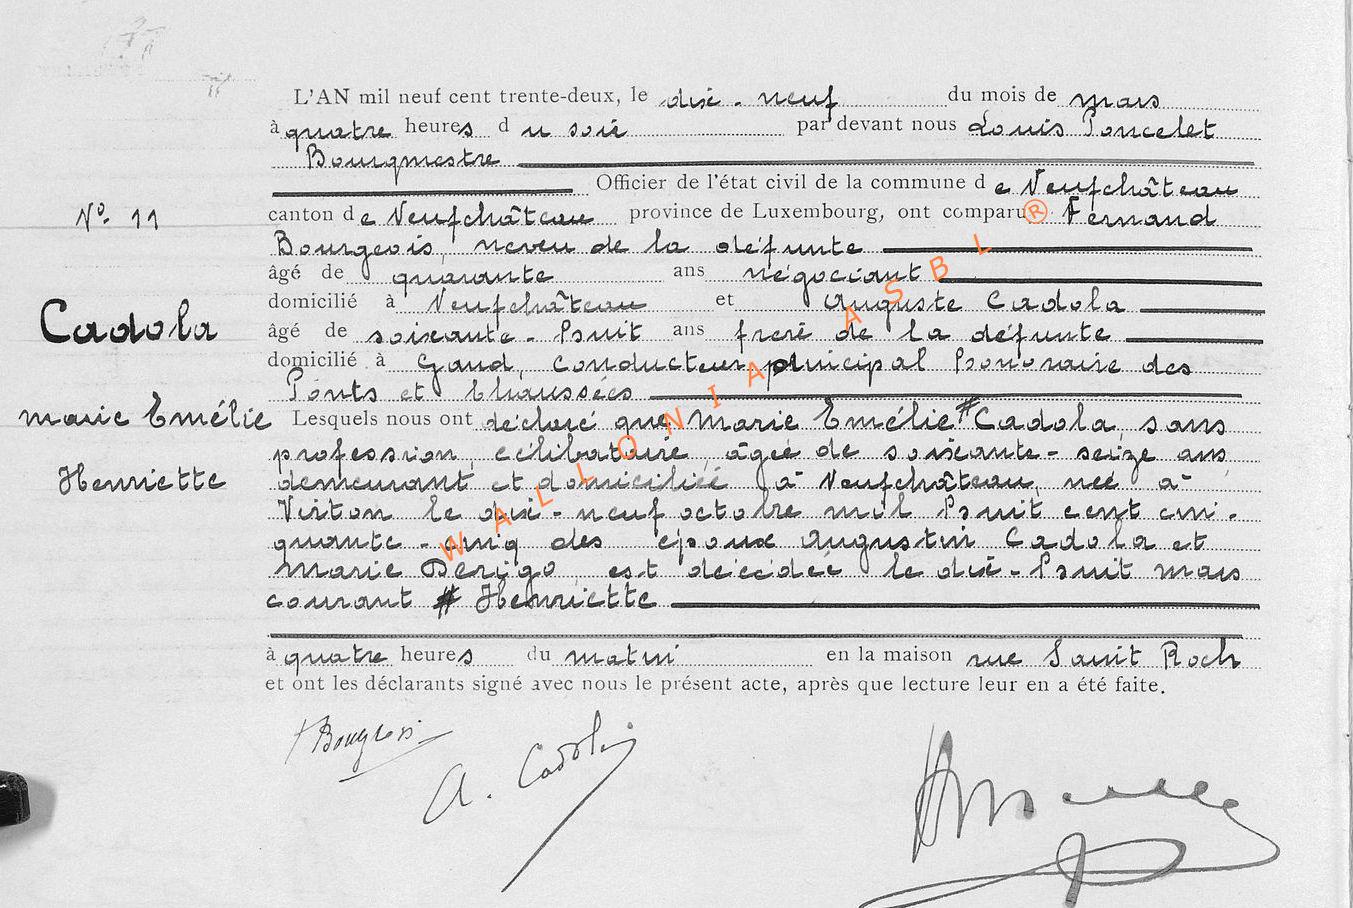 L'AN mil neuf cent trente-deux, le dix-neuf du mois de mars
à quatre heures du soir par devant nous Louis Poncelet
Bourgmestre
Officier de l'état civil de la commune de Neufchâteau
Nº 11
canton de Neufchâteau province de Luxembourg, ont comparu Fernand
Bourgeois, neveu de la défunte
âgé de quarante ans négociant
domicilié à Neufchâteau et Auguste Cadola
Cadola
âgé de soixante-huit ans frère de la défunte
domicilié à Gand, conducteur principal honoraire des
Ponts et Chaussées
Marie Emélie
Henriette
Lesquels nous ont déclaré que Marie Emélie # Cadola, sans
profession, célibataire, âgée de soixante-seize ans,
demeurant et domiciliée à Neufchâteau, née à
Virton le dix-neuf octobre mil huit cent cin-
quante-cinq des époux Augustin Cadola et
Marie Derigo, est décédée le dix-huit mars
courant # Henriette
à quatre heures du matin en la maison rue Saint Roch
et ont les déclarants signé avec nous le présent acte, après que lecture leur en a été faite.
F Bourgeois
A. Cadola
WALLONIA ASBL ®